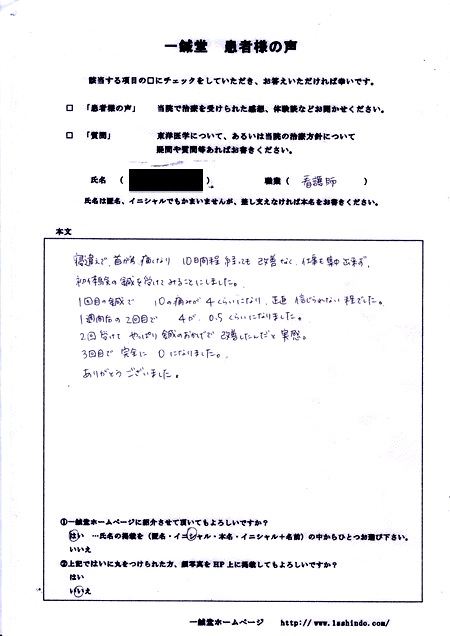 一鍼堂 患者様の声
該当する項目の□にチェックをしていただき、お答えいただければ幸いです。
□ 「患者様の声」 当院で治療を受けられた感想、体験談などお聞かせください。
□ 「質問」 東洋医学について、あるいは当院の治療方針について
疑問や質問等あればお書きください。
氏名 ( ) 職業 ( 看護師 )
氏名は匿名、イニシャルでもかまいませんが、差し支えなければ本名をお書きください。
本文
寝違えで、首が痛くなり 10日間程経っても改善なく、仕事も集中出来ず、
初体験の鍼を受けてみることにしました。
1回目の鍼で 10の痛みが4くらいになり、正直 信じられない程でした。
1週間后の2回目で 4が、0.5くらいになりました。
2回受けて やっぱり鍼のおかげで改善したんだと実感。
3回目で 完全に 0になりました。
ありがとうございました。
①一鍼堂ホームページに紹介させて頂いてもよろしいですか？
はい …氏名の掲載を（匿名・イニシャル・本名・イニシャル＋名前）の中からひとつお選び下さい。
いいえ
②上記ではいに丸をつけられた方、顔写真をHP上に掲載してもよろしいですか？
はい
いいえ
一鍼堂ホームページ http://www.1sshindo.com/